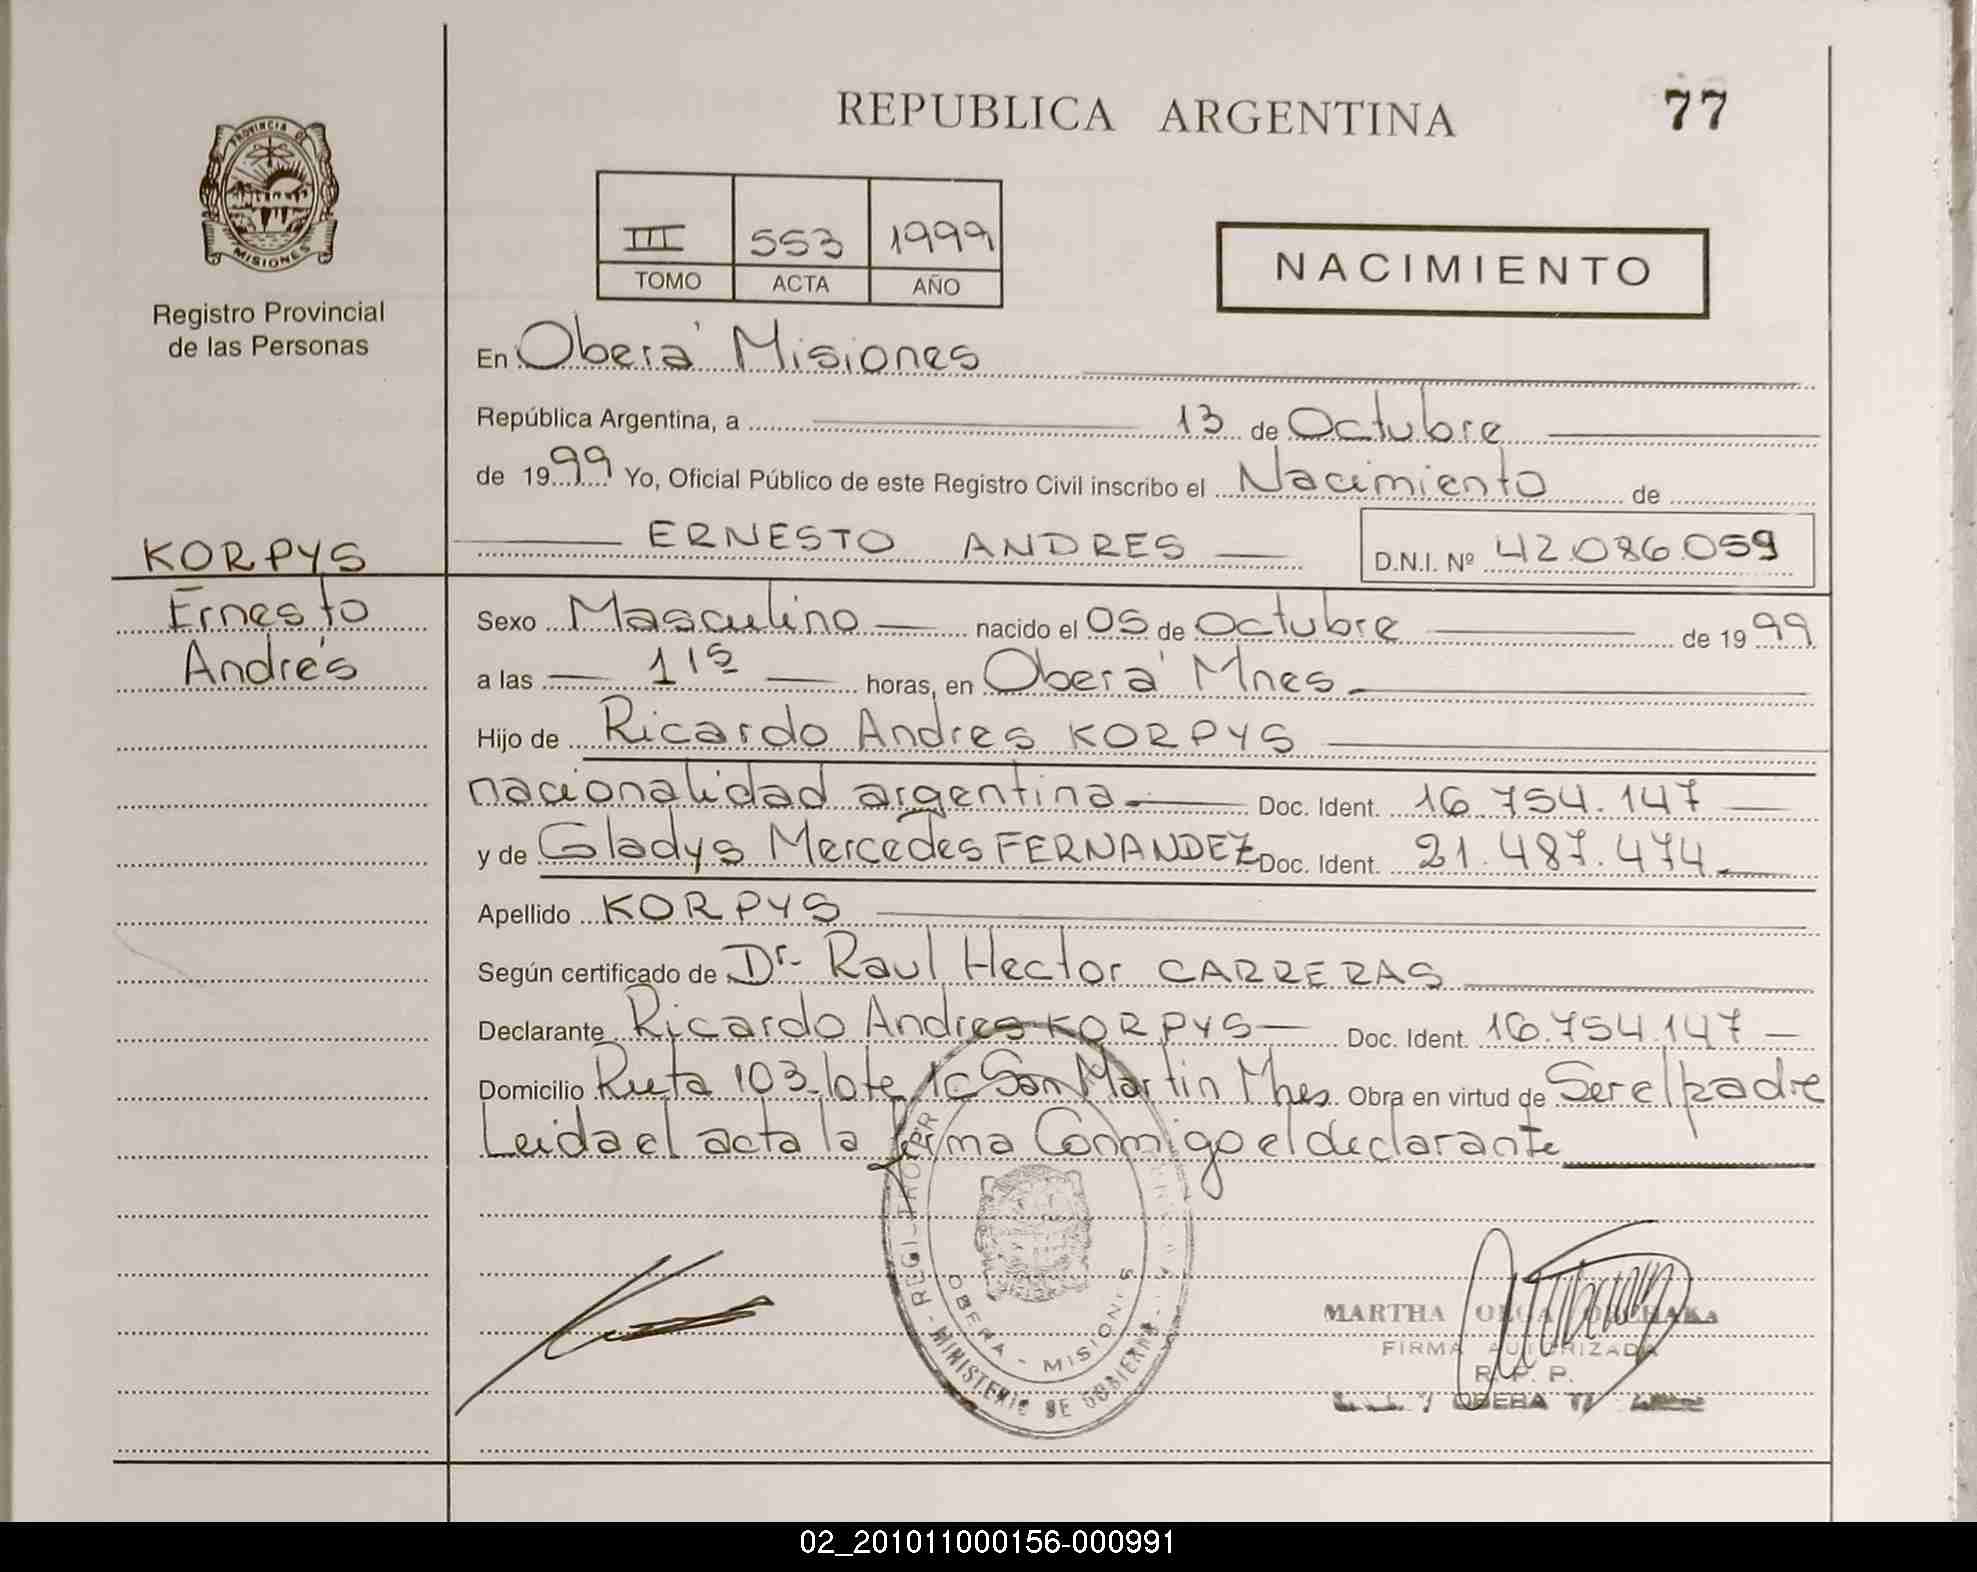 REPUBLICA ARGENTINA
77
PROVINCIA DE
MISIONES
Registro Provincial
de las Personas
III 553 1999
TOMO ACTA AÑO
NACIMIENTO
En Oberá Misiones
República Argentina, a 13 de Octubre
de 1999 Yo, Oficial Público de este Registro Civil inscribo el Nacimiento de
ERNESTO ANDRES D.N.I. Nº 42.086.059
KORPYS
Ernesto
Andrés
Sexo Masculino nacido el 05 de Octubre de 1999
a las 11 horas, en Oberá Mnes.
Hijo de Ricardo Andres KORPYS
nacionalidad argentina Doc. Ident. 16.754.147
y de Gladys Mercedes FERNANDEZ Doc. Ident. 21.487.474
Apellido KORPYS
Según certificado de Dr. Raul Hector CARRERAS
Declarante Ricardo Andres KORPYS Doc. Ident. 16.754.147
Domicilio Ruta 103 lote 1c San Martin Mnes. Obra en virtud de Ser el padre
Leida el acta la firma Conmigo el declarante
OBERA - MISIONES
MINISTERIO DE GOBIERNO
MARTHA OLGA
FIRMA AUTORIZADA
R. P. P.
OBERA
02_201011000156-000991